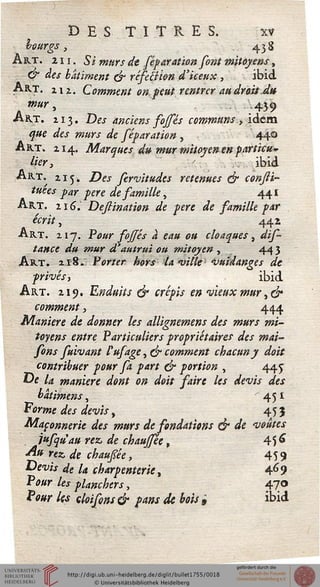 DES TITRES. xv
bourgs, 438
ART. 211. Si murs de séparation sont mitoyens,
& des bâtiment & réfection d'iceux, ibid
ART. 212. Comment on peut rentrer au droit du
mur, 439
ART. 213. Des anciens fossés communs, idem
que des murs de séparation, 440
ART. 214. Marques du mur mitoyen en particu-
lier, ibid
ART. 215. Des servitudes retenues & consti-
tuées par pere de famille, 441
ART. 216. Destination de pere de famille par
écrit, 442
ART. 217. Pour fossés à eau ou cloaques, dis-
tance du mur d'autrui ou mitoyen, 443
ART. 218. Porter hors la ville vuidanges de
privés, ibid
ART. 219. Enduits & crépis en vieux mur, &
comment, 444
Maniere de donner les allignemens des murs mi-
toyens entre Particuliers propriétaires des mai-
sons suivant l'usage, & comment chacun y doit
contribuer pour sa part & portion, 445
De la maniere dont on doit faire les devis des
bâtimens, 451
Forme des devis, 453
Maçonnerie des murs de fondations & de voûtes
jusqu'au rez de chaussée, 456
Au rez de chaussée, 459
Devis de la charpenterie, 469
Pour les planchers, 470
Pour les cloisons & pans de bois, ibid
UNIVERSITÄTS-
BIBLIOTHEK
HEIDELBERG
http://digi.ub.uni-heidelberg.de/diglit/bullet1755/0018
© Universitätsbibliothek Heidelberg
gefördert durch die